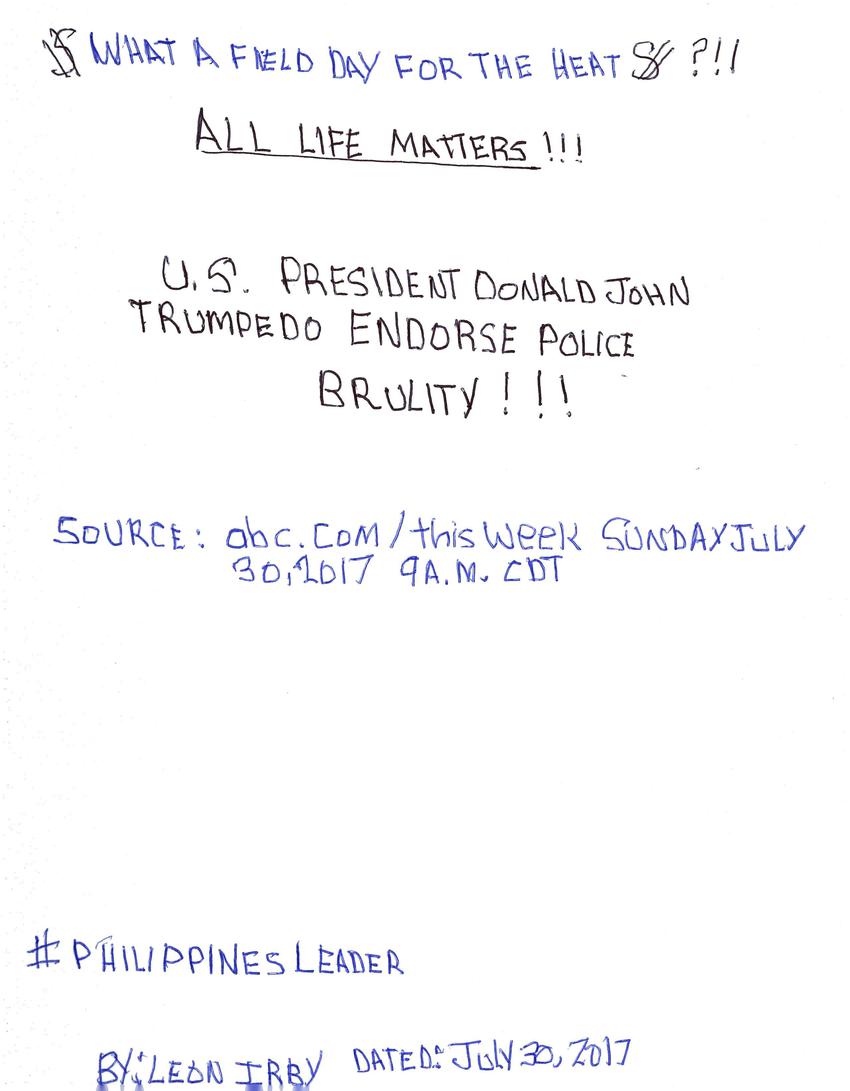 $ WHAT A FIELD DAY FOR THE HEAT $ ?!!
ALL LIFE MATTERS !!!
U.S. PRESIDENT DONALD JOHN
TRUMPEDO ENDORSE POLICE
BRULITY ! ! !
SOURCE: abc.COM/this Week SUNDAY JULY
30, 2017 9A.M. CDT
# PHILIPPINES LEADER
BY: LEON IRBY DATED: JULY 30, 2017